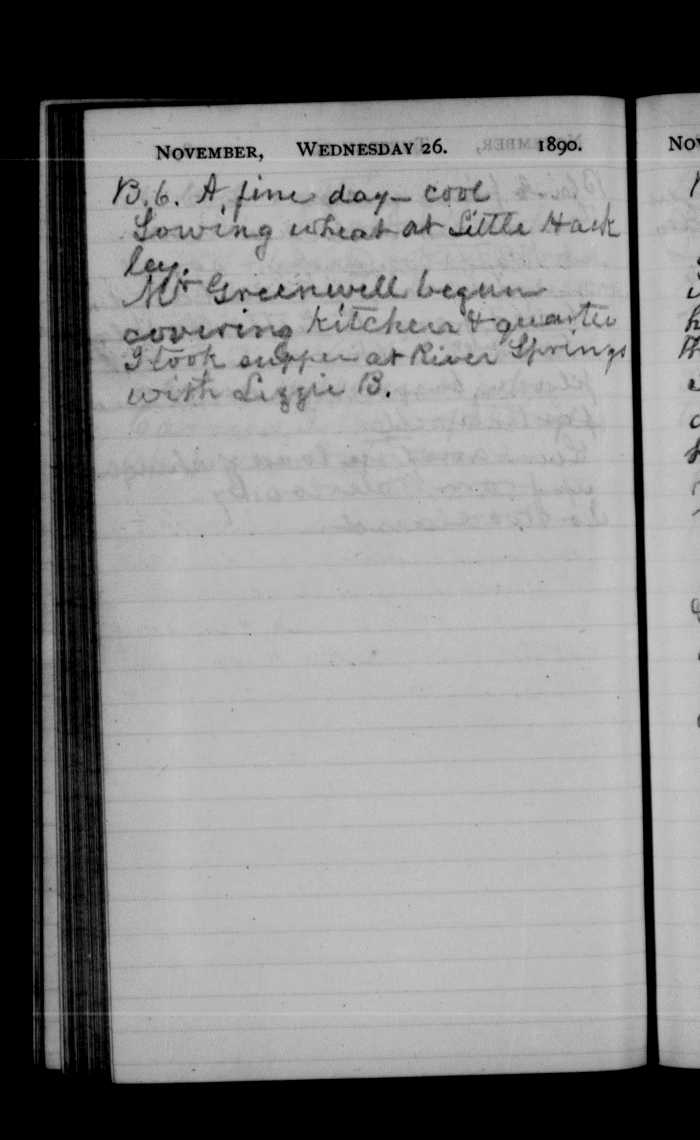 NOVEMBER, WEDNESDAY 26. 1890.
B.6. A fine day - cool
Sowing wheat at Little Hack
ley.
Mr Greenwell begun
covering kitchen & quarter
I took supper at River Springs
with Lizzie B.
Nov